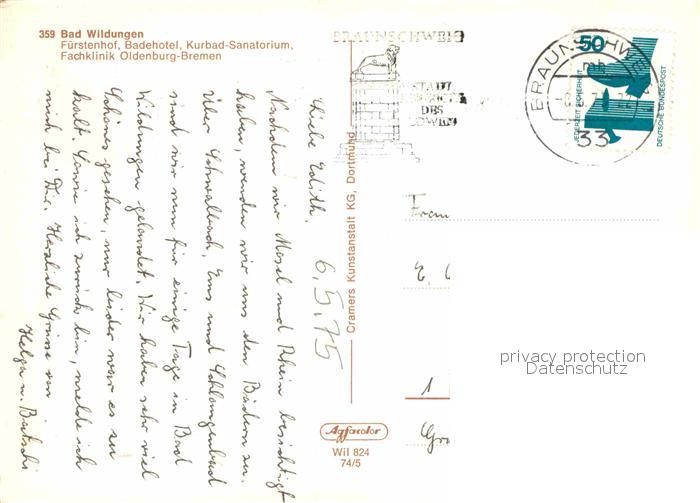 359 Bad Wildungen
Fürstenhof, Badehotel, Kurbad-Sanatorium,
Fachklinik Oldenburg-Bremen
Liebe Edith,
Nachdem wir Mosel und Rhein besichtigt
haben, wenden wir uns den Bädern zu.
Über Schwalbach, Ems und Schlangenbad
sind wir nun für einige Tage in Bad
Wildungen gelandet. Wir haben sehr viel
Schönes gesehen, nur leider war es zu
kalt. Sowie ich zurück bin, melde ich
mich bei Dir. Herzliche Grüsse von
Helga u.
6.5.75
Cramers Kunstanstalt KG, Dortmund
Agfacolor
Wil 824
74/5
BRAUNSCHWEIG
STADT
DES
LÖWEN
BRAUNSCHWE
mh
33
50
JEDERZEIT SICHERHEIT
DEUTSCHE BUNDESPOST
Frau
E.
1
privacy protection
Datenschutz